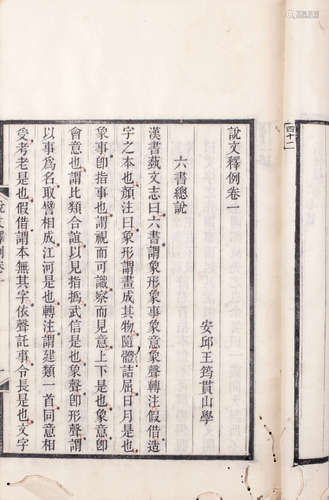 說文釋例卷一
安邱王筠貫山學
六書總說
漢書藝文志曰六書謂象形象事象意象聲轉注假借造
字之本也顏注曰象形謂畫成其物隨體詰屈日月是也
象事卽指事也謂視而可識察而見意上下是也象意卽
會意也謂比類合誼以見指撝武信是也象聲卽形聲謂
以事爲名取譬相成江河是也轉注謂建類一首同意相
受考老是也假借謂本無其字依聲託事令長是也文字
說文釋例卷一
四十二